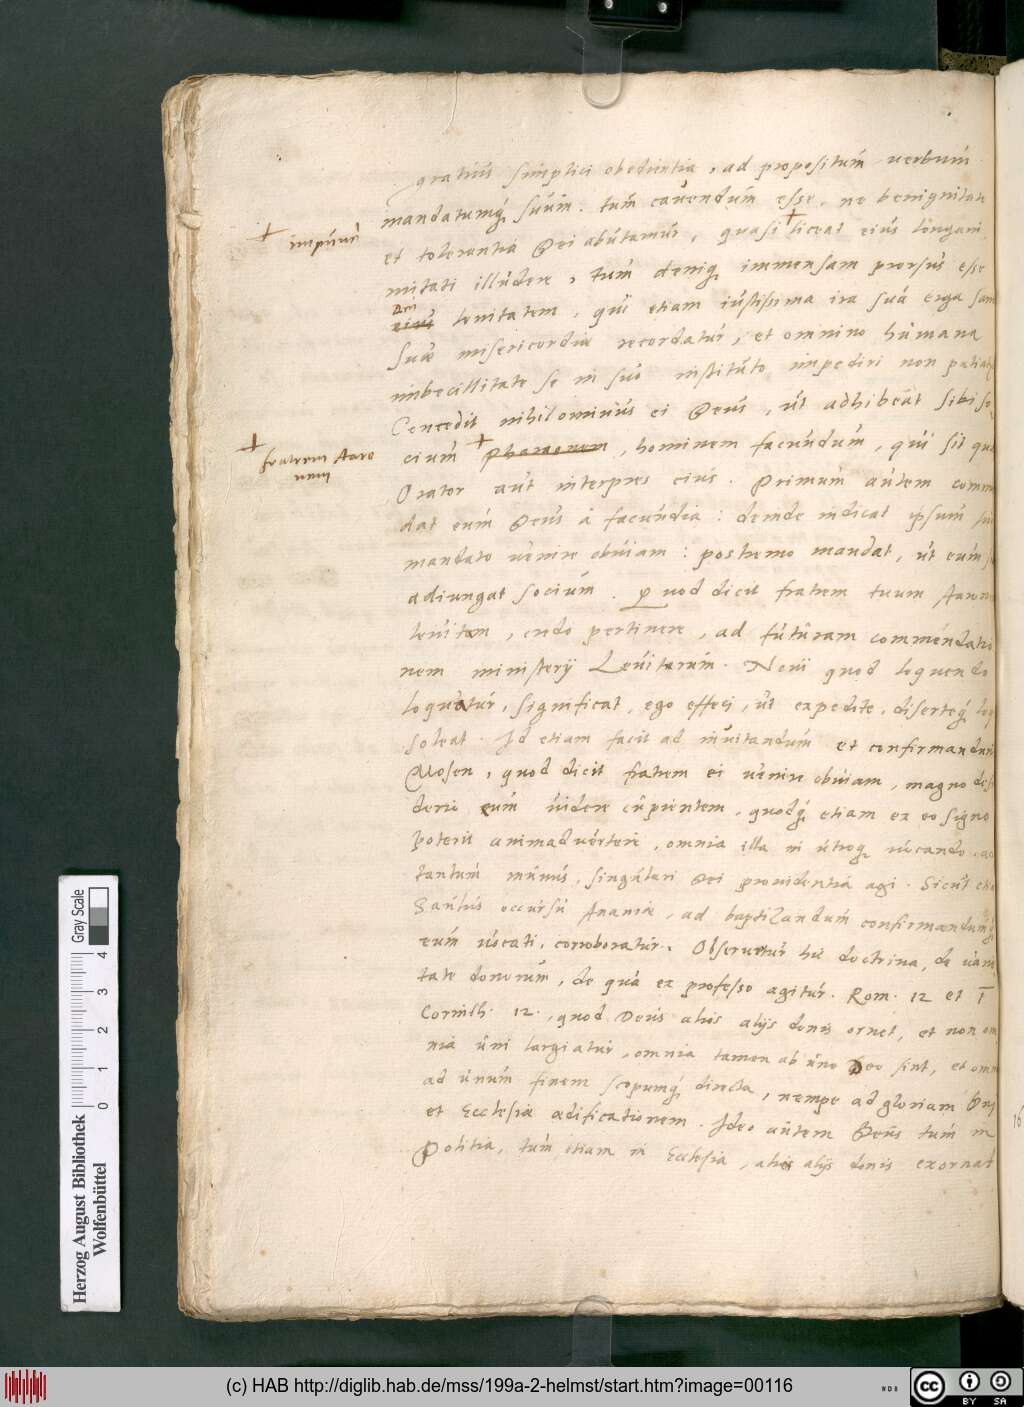 gratius simplici obedientia, ad propositum verbum
mandatumq́; suúm. túm cavendúm esse, ne benignitate
+ impúnè
et tolerantia Dei abútamúr, quasi + liceat eiús longani
mitati illúdere, túm deniq; immensam prorsus esse
Dei
eiús lenitatem, qui etiam iústissima ira súa erga san
suæ misericordiæ recordatúr, et omnino húmana
imbecillitate se in súo institúto impediri non patiat
Concedit nihilominús ei Deús, út adhibeat sibi so
+ fratrem Aaro
nem
ciúm + Pharaonem, hominem facúndúm, qúi sit qua
Orator aút interpres eiús. Primúm aútem comm
dat eúm Deús à facúndia: deinde indicat ipsúm
mandato venire obúiam: postremo mandat, út eúm
adiungat sociúm. Quod dicit fratrem tuum Aaronem
levitam, credo pertinere, ad fútúram commendatio
nem ministerij Levitarúm. Novi quod loquendo
loquatúr, significat, ego effeci, út expedite, diserteq́; loq
soleat. Id etiam facit ad invitandúm et confirmandúm
Mosen, quod dicit fratrem ei venire obviam, magno desi
derio eúm videre cúpientem, quodq́; etiam ex eo signo
poterit animadvertere, omnia illa in útroq; vocando ad
tantúm múnús, singúlari Dei providentia agi. Sicút etia
Saúlús occúrsú Ananiæ, ad baptizandúm confirmandúmq́;
eúm vocati, corroboratúr. Observetúr hic doctrina, de varie
tate donorúm, de qúa ex professo agitúr. Rom. 12 et 1
Corinth. 12., quod Deús alios alijs donis ornet, et non om
nia úni largiatúr, omnia tamen ab úno Deo sint, et omn
ad únúm finem scopumq́; directa, nempe ad gloriam Dei
et Ecclesiæ ædificationem. Ideo aútem Deús túm in
Politia, túm etiam in Ecclesia, alios alijs donis exornat
Herzog August Bibliothek
Wolfenbüttel
0 1 2 3 4
Gray Scale
(c) HAB http://diglib.hab.de/mss/199a-2-helmst/start.htm?image=00116
cc BY SA